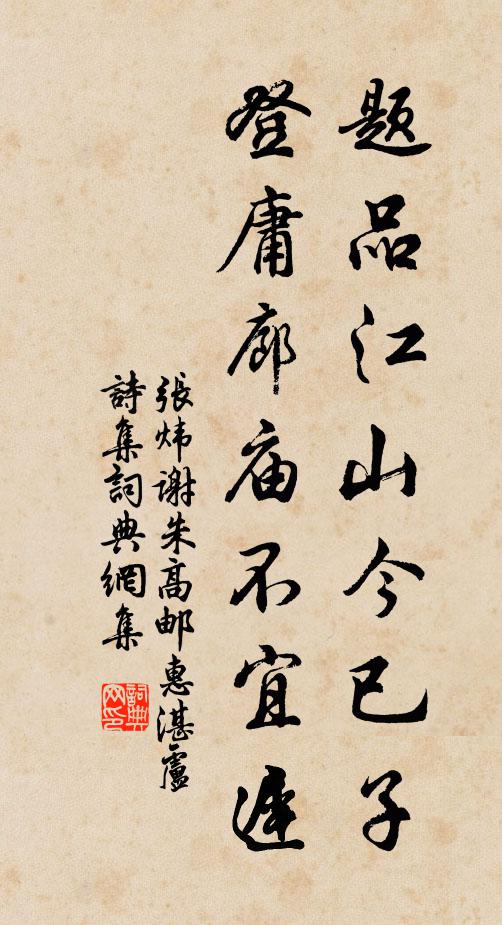 题品江山今已子
登庸廊庙不宜遲
張炜谢朱高邮惠湛盧
詩集詞典網集
詞典
网印